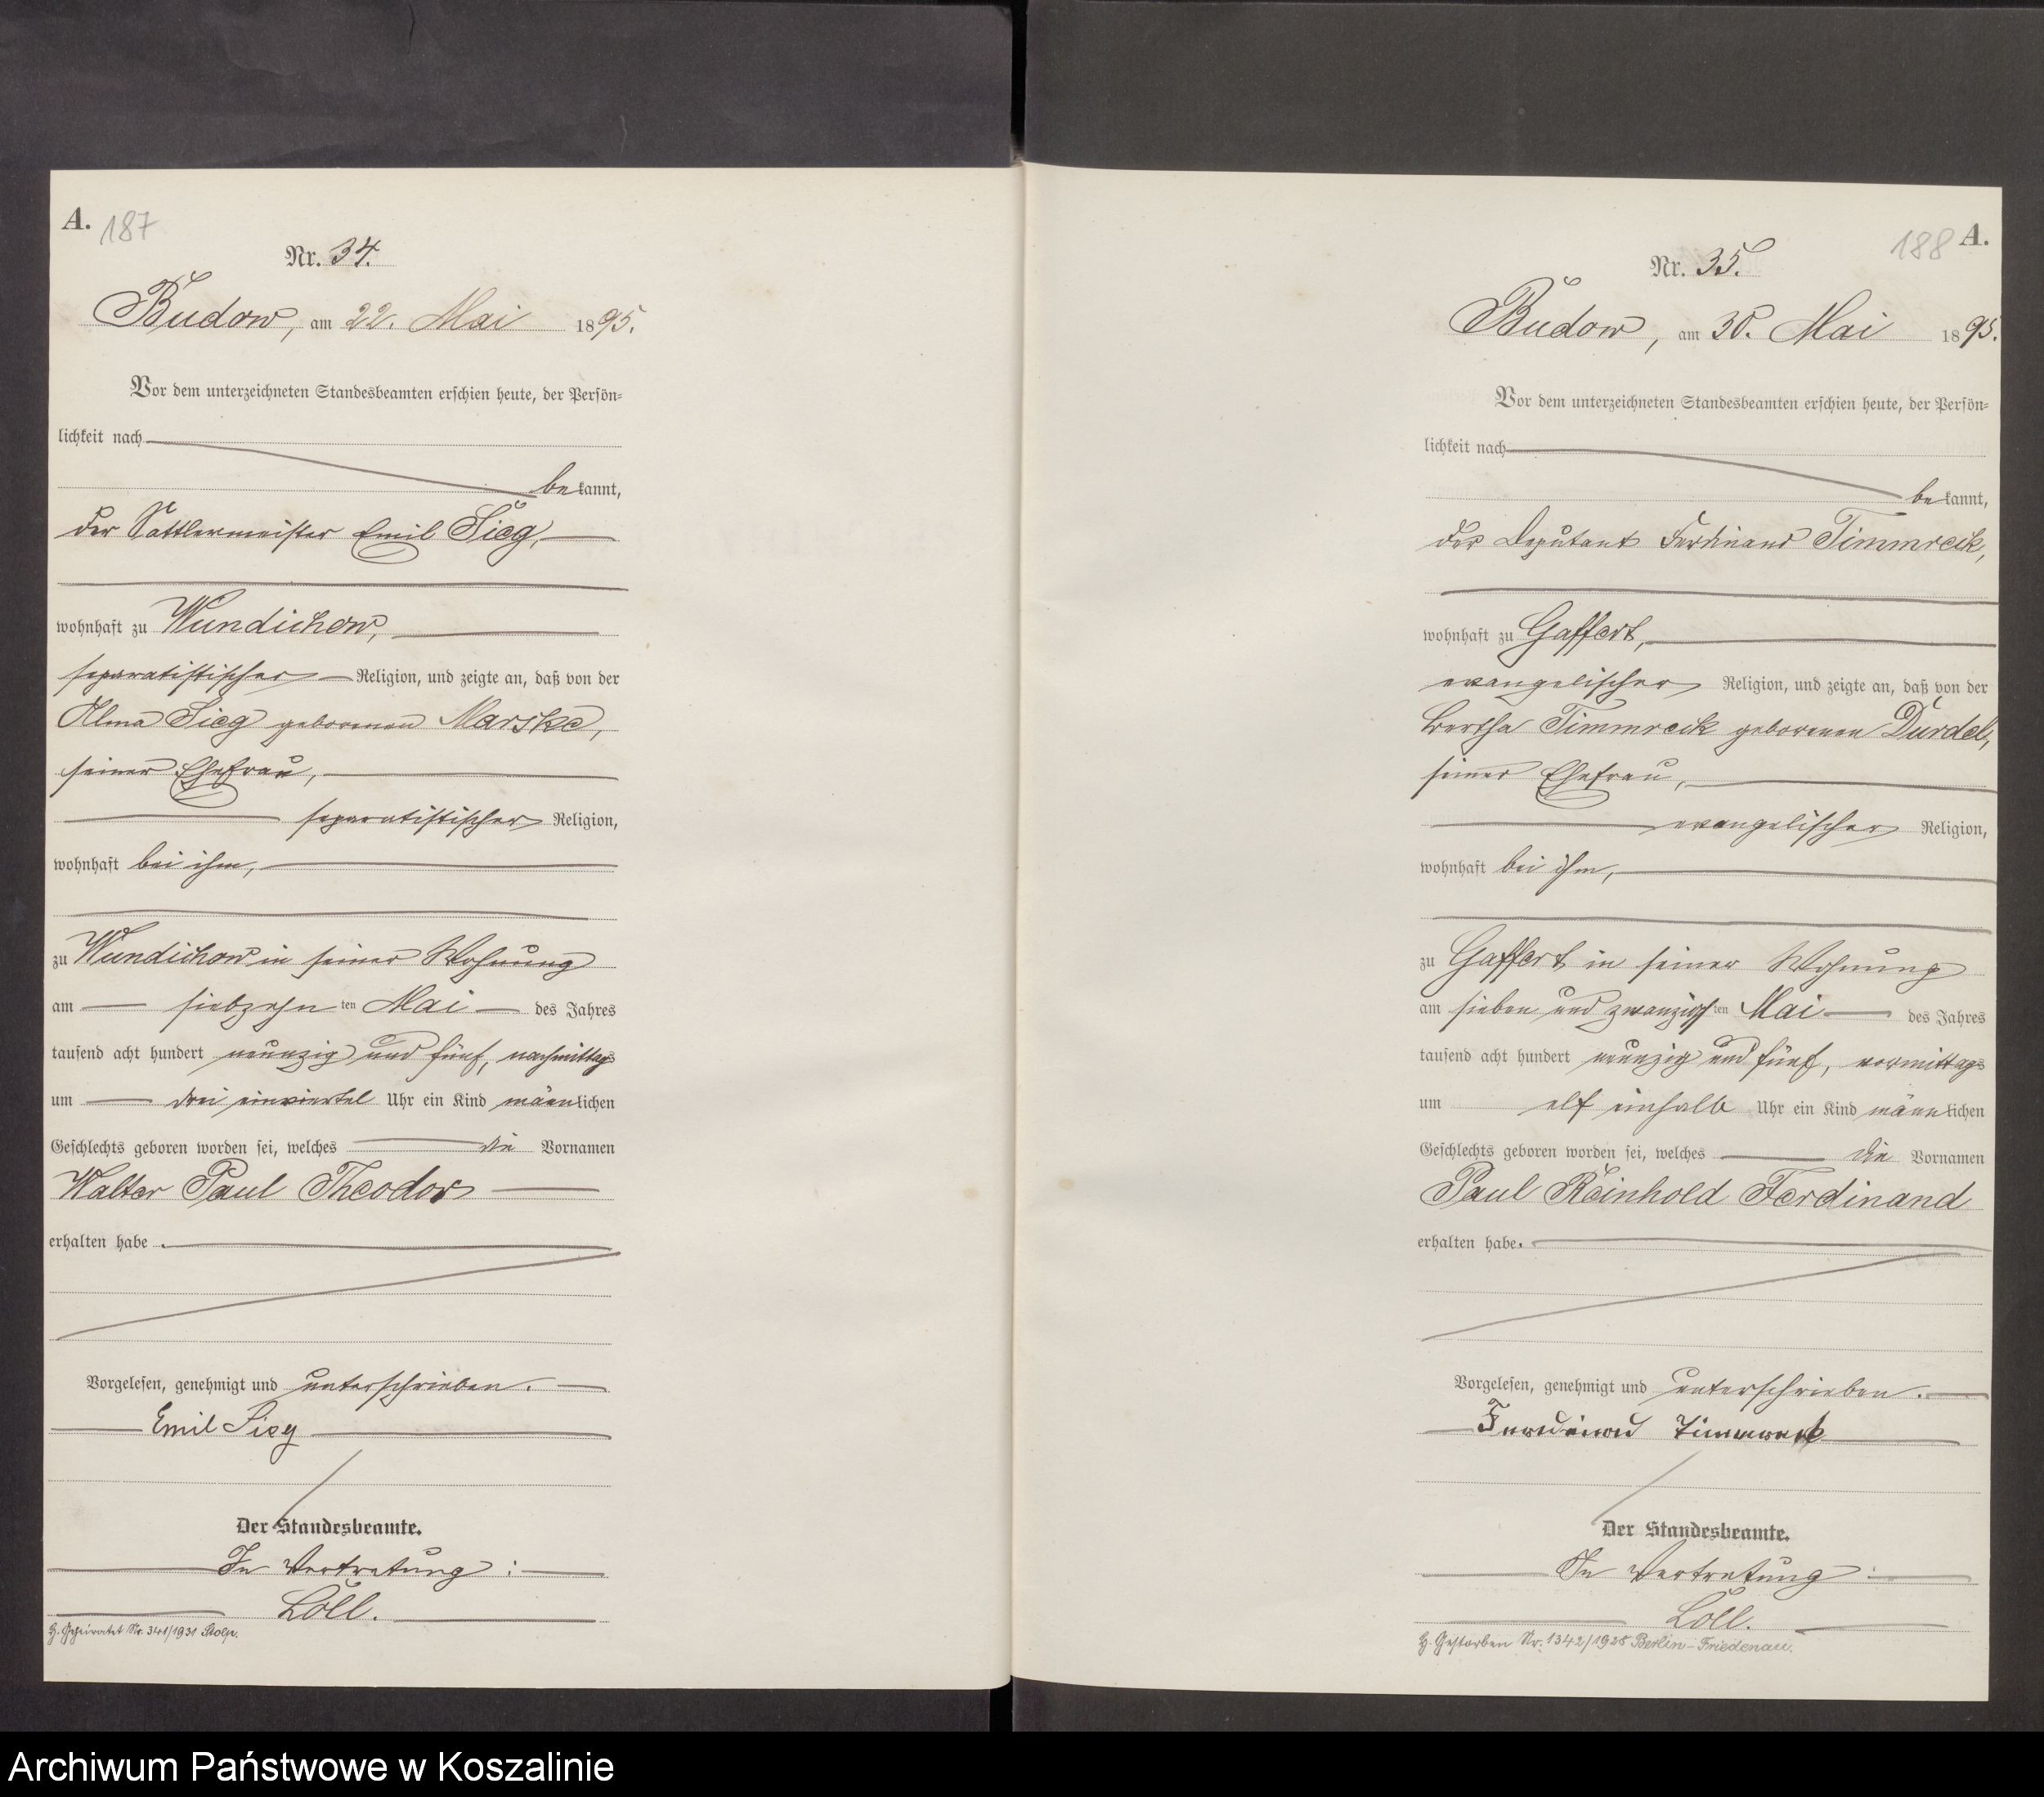 A. 187
Nr. 34.
Budow, am 22. Mai 1895.
Vor dem unterzeichneten Standesbeamten erschien heute, der Persön=
lichkeit nach
bekannt,
der Sattlermeister Emil Sieg,
wohnhaft zu Wundichow,
separatistischer Religion, und zeigte an, daß von der
Alma Sieg geborenen Marske,
seiner Ehefrau,
separatistischer Religion,
wohnhaft bei ihm,
zu Wundichow in seiner Wohnung
am siebzehn ten Mai des Jahres
tausend acht hundert neunzig und fünf, nachmittags
um drei einviertel Uhr ein Kind männlichen
Geschlechts geboren worden sei, welches die Vornamen
Walter Paul Theodor
erhalten habe.
Vorgelesen, genehmigt und unterschrieben.
Emil Sieg
Der Standesbeamte.
In Vertretung:
Löll.
H. Geheiratet Nr. 341/1931 Stolp.
188 A.
Nr. 35.
Budow, am 30. Mai 1895.
Vor dem unterzeichneten Standesbeamten erschien heute, der Persön=
lichkeit nach
bekannt,
der Deputant Ferdinand Timmreck,
wohnhaft zu Gaffert,
evangelischer Religion, und zeigte an, daß von der
Bertha Timmreck geborenen Durdel,
seiner Ehefrau,
evangelischer Religion,
wohnhaft bei ihm,
zu Gaffert in seiner Wohnung
am sieben und zwanzigsten Mai des Jahres
tausend acht hundert neunzig und fünf, vormittags
um elf einhalb Uhr ein Kind männlichen
Geschlechts geboren worden sei, welches die Vornamen
Paul Reinhold Ferdinand
erhalten habe.
Vorgelesen, genehmigt und unterschrieben.
Ferdinand Timmreck
Der Standesbeamte.
In Vertretung:
Löll.
H. Gestorben Nr. 1342/1928 Berlin-Friedenau.
Archiwum Państwowe w Koszalinie